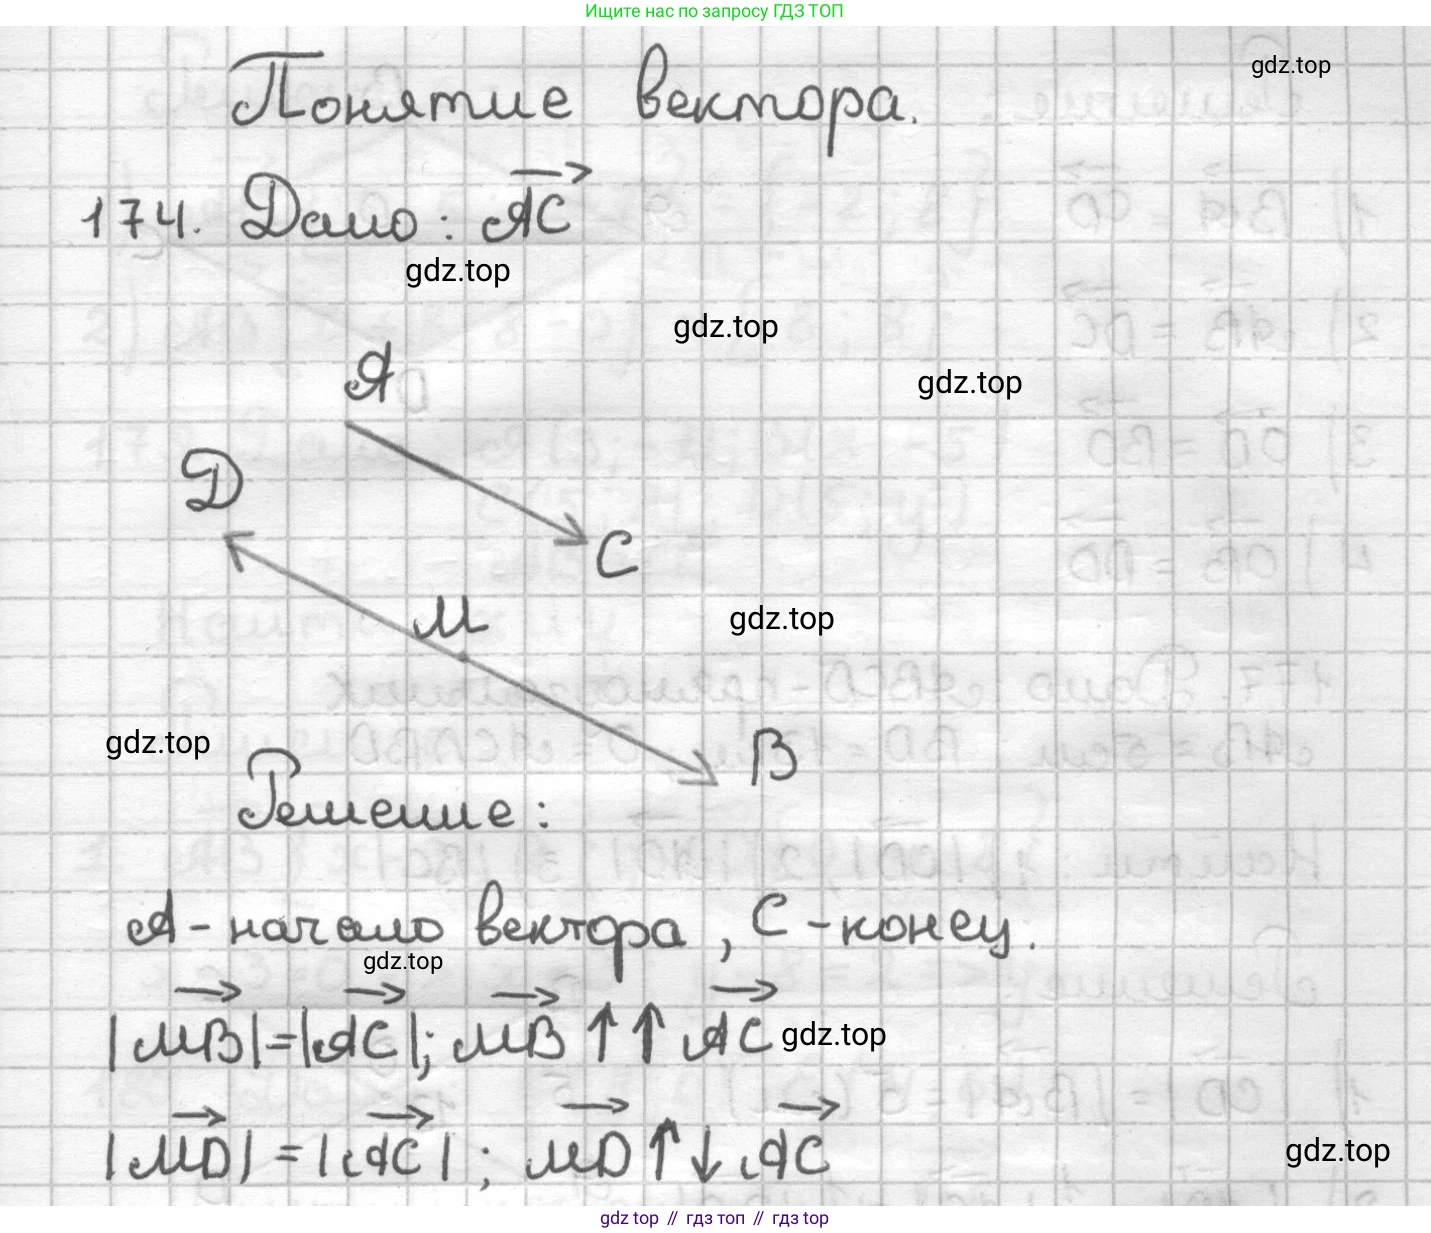 Ищите нас по запросу ГДЗ ТОП
gdz.top
Понятие вектора.
174. Дано: AC
gdz.top
gdz.top
A
gdz.top
D
C
M
gdz.top
gdz.top
B
Решение:
A-начало вектора, C-конец.
gdz.top
|MB|=|AC|; MB↑↑AC
gdz.top
|MD|=|AC|; MD↑↓AC
gdz.top
gdz top // гдз топ // gdz top